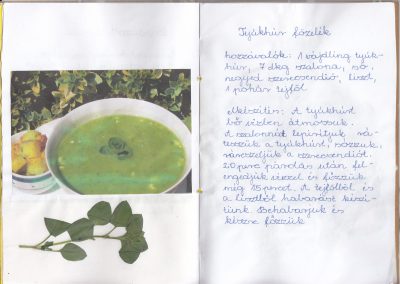 Tyúkhúr főzelék
hozzávalók: 1 vájdling tyúk-
húr, 7 dkg szalona, só,
negyed szerecsendió, liszt,
1 pohár tejföl
Elkészítés: A tyúkhúrt
bő vízben átmossuk.
A szalonnát lepirítjuk rá-
tesszük a tyúkhúrt, sózzuk,
rá reszeljük a szerecsendiót.
20 perc párolás után fel-
engedjük vízzel és főzzük
még 15 percet. A tejfölből és
a lisztből habarást készí-
tünk. Behabarjuk és
készre főzzük